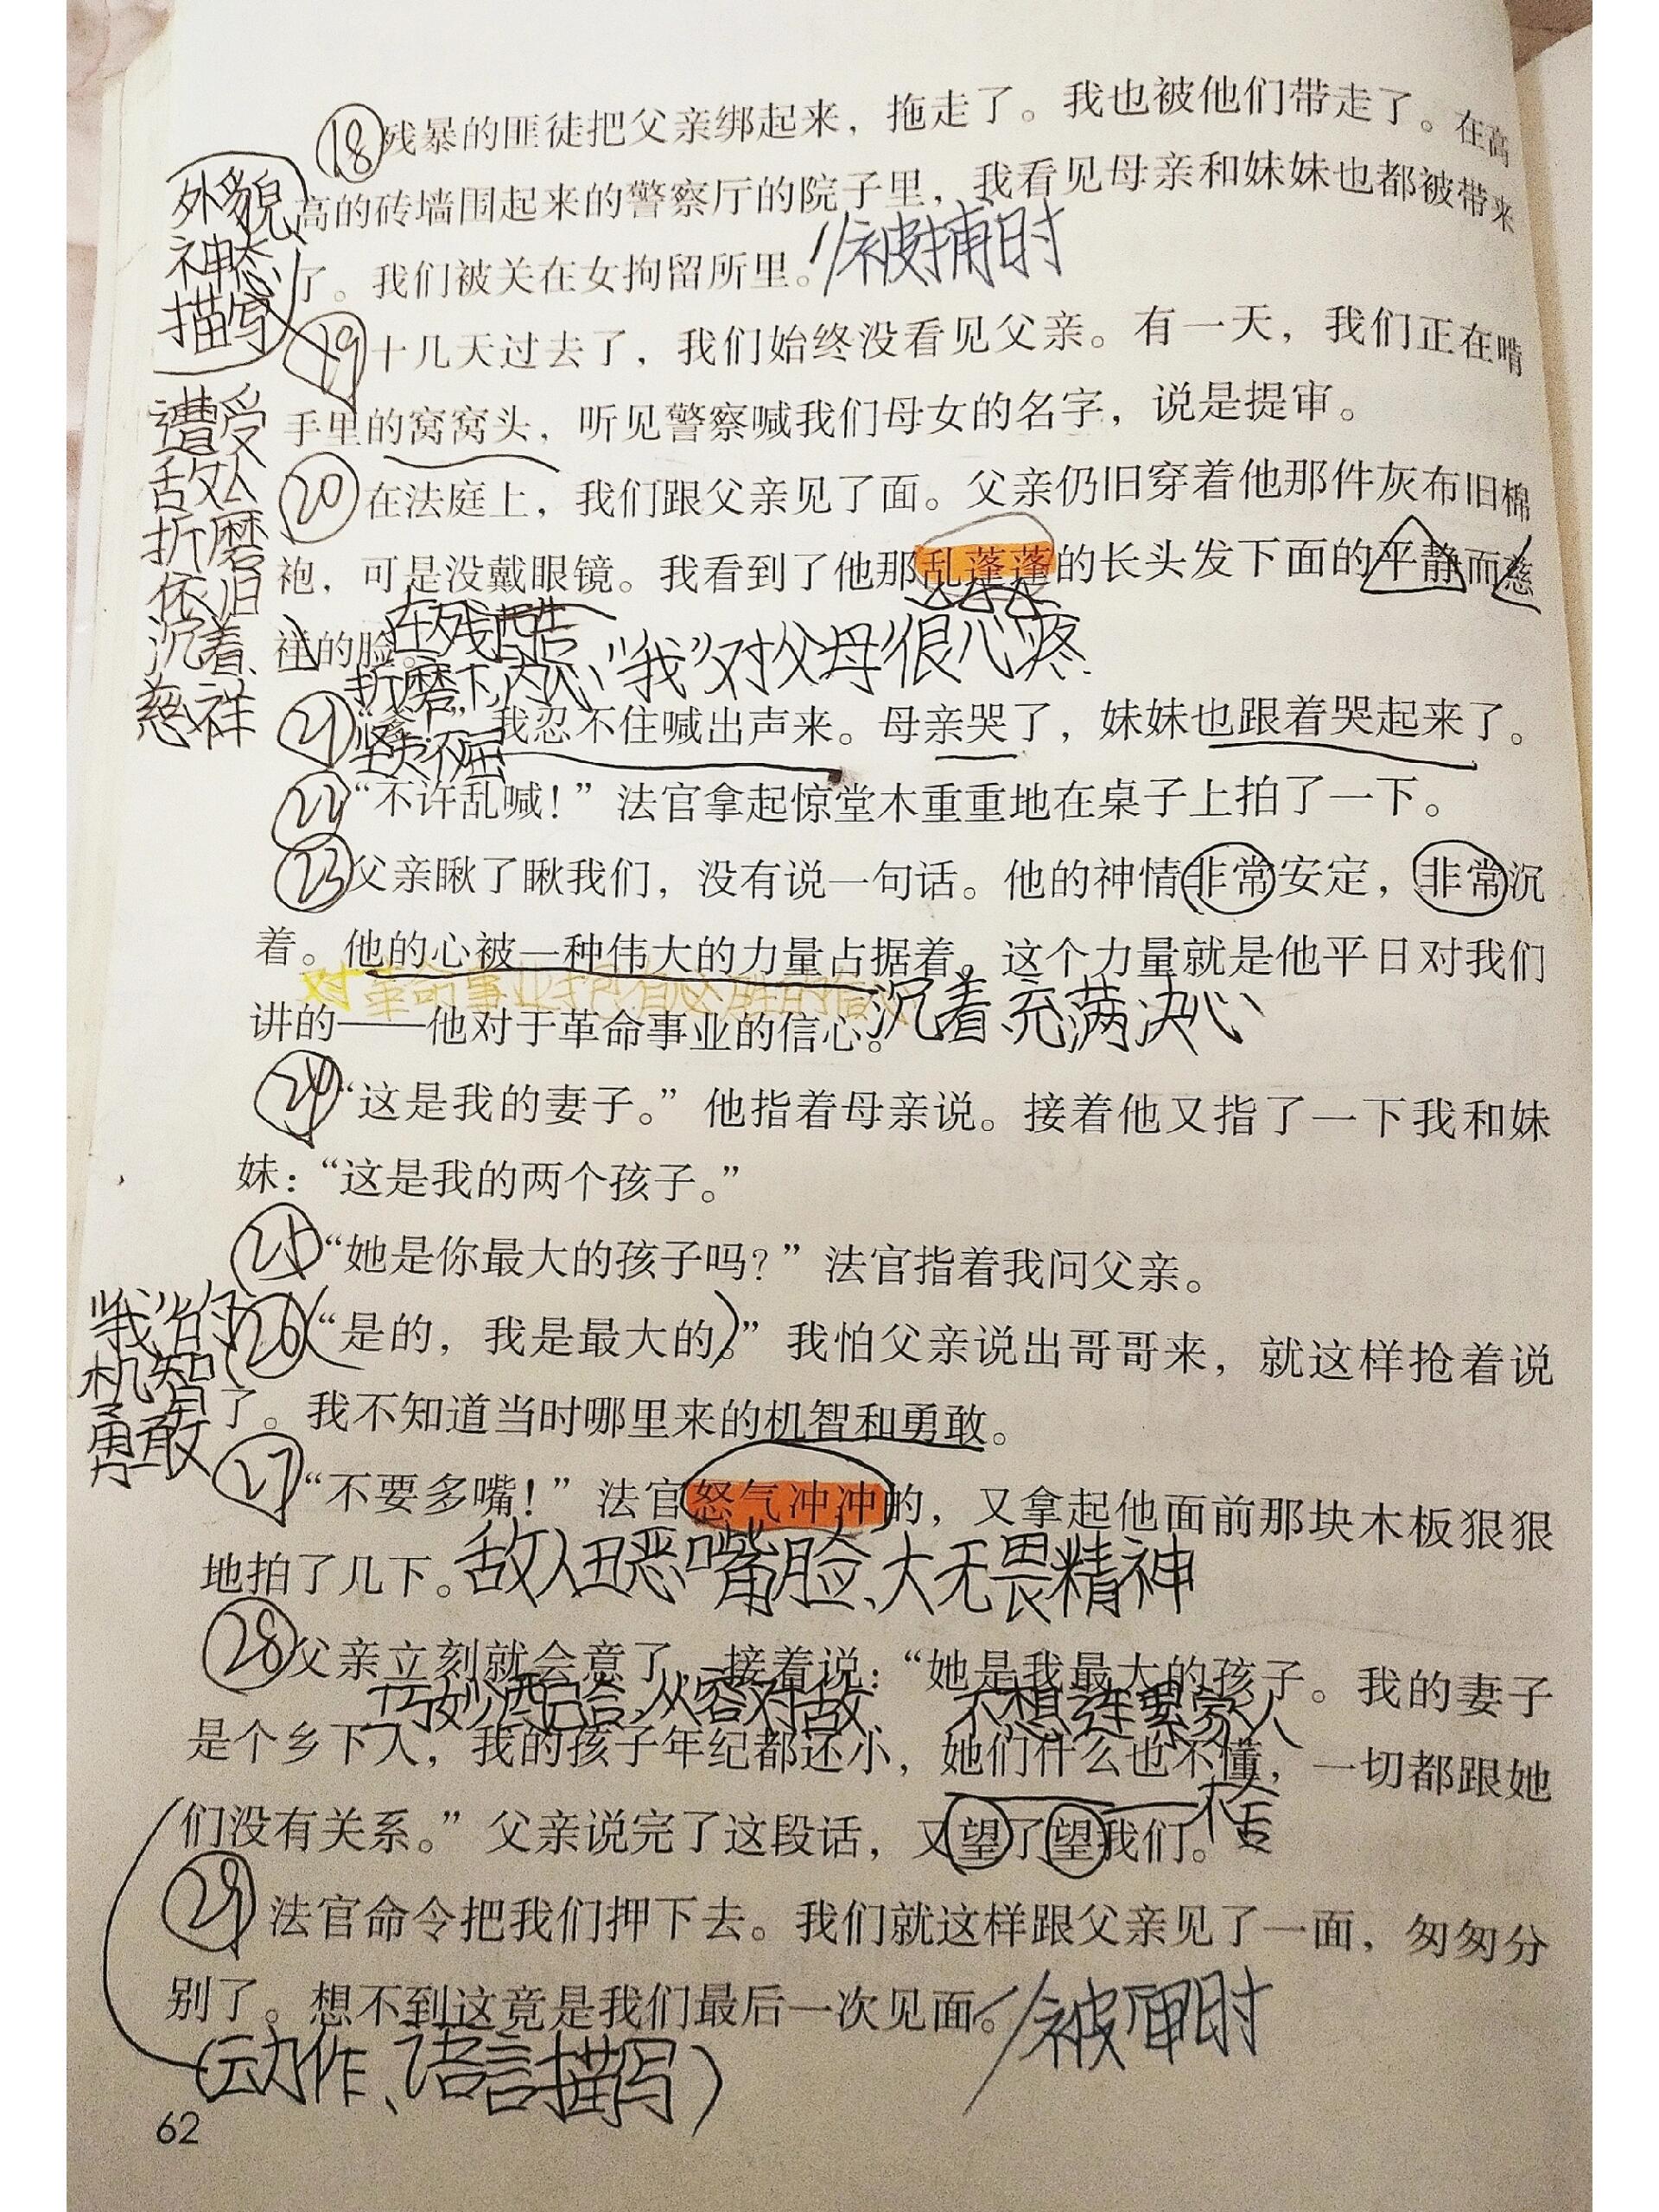 ⑱残暴的匪徒把父亲绑起来，拖走了。我也被他们带走了。在高
外貌
高的砖墙围起来的警察厅的院子里，我看见母亲和妹妹也都被带来
神态
了。我们被关在女拘留所里。//被捕时
描写
⑲十几天过去了，我们始终没看见父亲。有一天，我们正在啃
遭受
手里的窝窝头，听见警察喊我们母女的名字，说是提审。
敌人
⑳在法庭上，我们跟父亲见了面。父亲仍旧穿着他那件灰布旧棉
折磨
袍，可是没戴眼镜。我看到了他那乱蓬蓬的长头发下面的平静而慈
依旧
沉着、
祥的脸。
在残酷
折磨下,内心
坚贞不屈
“我”对父母很心疼.
慈祥
㉑“爹！”我忍不住喊出声来。母亲哭了，妹妹也跟着哭起来了。
㉒“不许乱喊！”法官拿起惊堂木重重地在桌子上拍了一下。
㉓父亲瞅了瞅我们，没有说一句话。他的神情非常安定，非常沉
着。他的心被一种伟大的力量占据着。这个力量就是他平日对我们
对革命事业抱有必胜的信心
讲的——他对于革命事业的信心。沉着、充满决心
㉔“这是我的妻子。”他指着母亲说。接着他又指了一下我和妹
妹：“这是我的两个孩子。”
㉕“她是你最大的孩子吗？”法官指着我问父亲。
“我”的
㉖(“是的，我是最大的)。”我怕父亲说出哥哥来，就这样抢着说
机智
了。我不知道当时哪里来的机智和勇敢。
勇敢
㉗“不要多嘴！”法官怒气冲冲的，又拿起他面前那块木板狠狠
地拍了几下。敌人丑恶嘴脸、大无畏精神
㉘父亲立刻就会意了，接着说：“她是我最大的孩子。我的妻子
巧妙配合,从容对敌、不想连累家人
是个乡下人，我的孩子年纪都还小，她们什么也不懂，一切都跟她
不舍
们没有关系。”父亲说完了这段话，又望了望我们。
㉙法官命令把我们押下去。我们就这样跟父亲见了一面，匆匆分
别了。想不到这竟是我们最后一次见面。//被审时
(动作、语言描写)
62